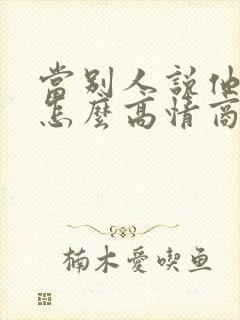 當別人說他
怎麼高情商
楠木愛喫鱼